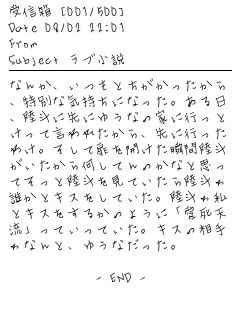 受信箱 [001/500]
Date 08/02 22:01
From
Subject ラブ小説
なんか、いつもとちがかったから
、特別な気持ちになった。ある日
、陸斗に先にゆうなの家に行っと
けって言われたから、先に行った
わけ。そして扉を開けた瞬間陸斗
がいたから何してんのかなと思っ
てそっと陸斗を見ていたら陸斗が
誰かとキスをしていた。陸斗が私
とキスをするかのように「愛死天
流」っていっていた。キスの相手
がなんと、ゆうなだった。
- END -